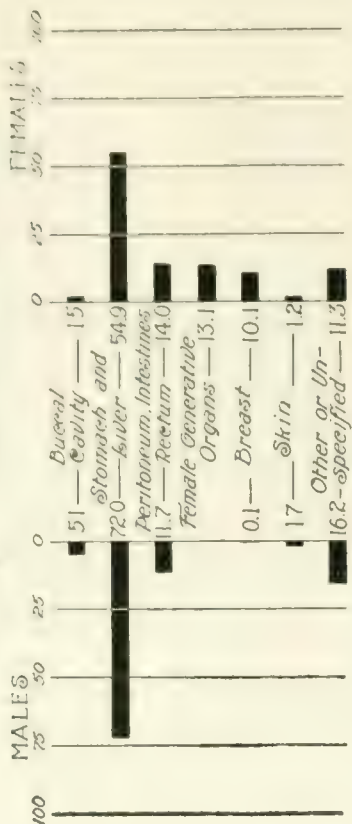 MALES FEMALES
100 75 50 25 0 0 25 50 75 100
Buccal
51—Cavity—15
Stomach and
720—Liver—54.9
Peritoneum, Intestines
11.7—Rectum—14.0
Female Generative
Organs—13.1
0.1—Breast—10.1
17—Skin—1.2
Other or Un-
16.2-specified—11.3